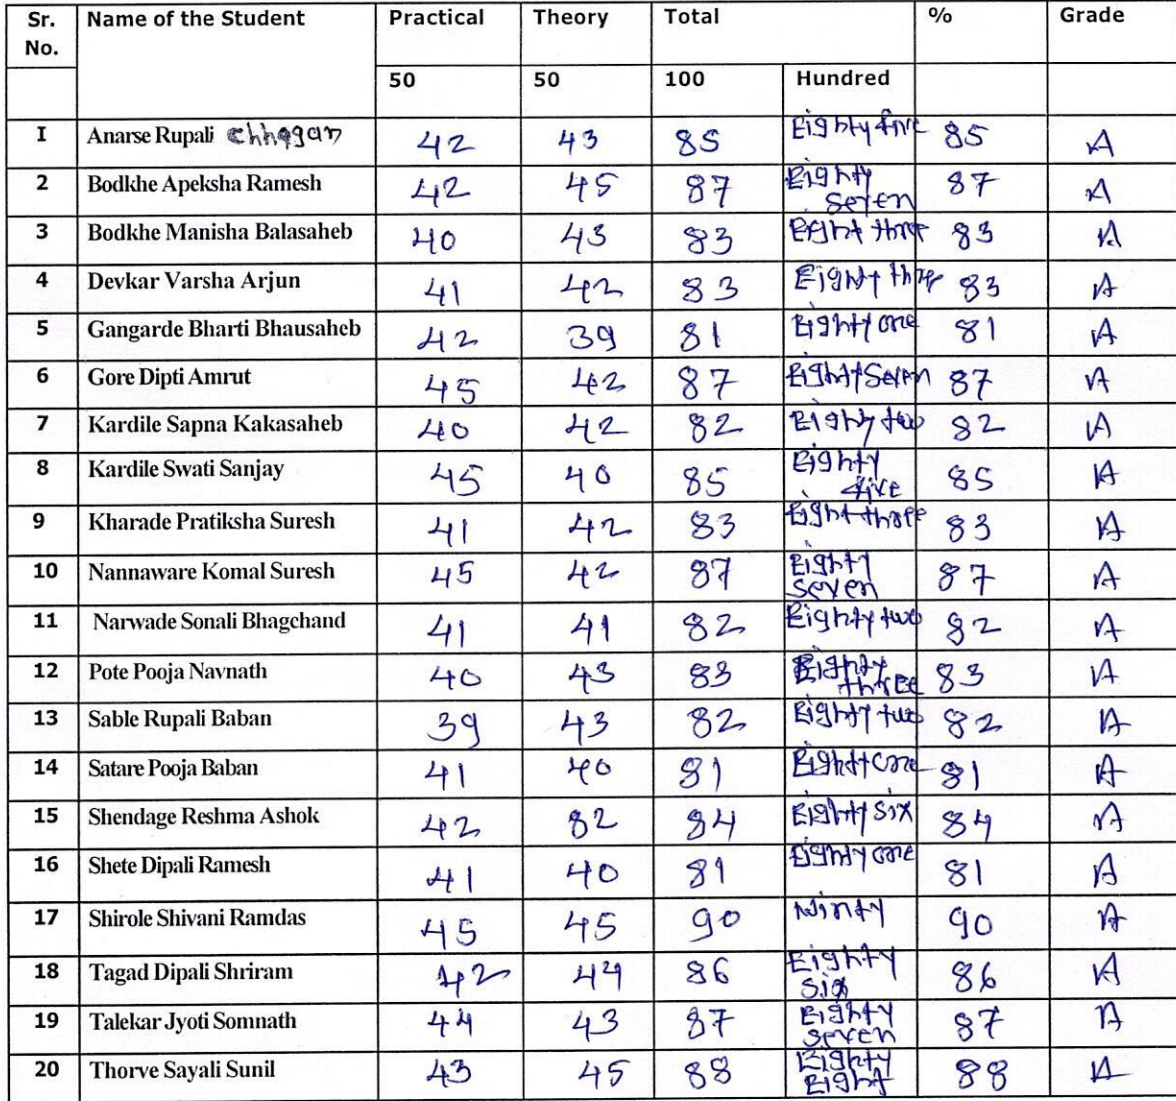 Sr. No. Name of the Student Practical Theory Total % Grade
50 50 100 Hundred
I Anarse Rupali Chhagan 42 43 85 Eighty five 85 A
2 Bodkhe Apeksha Ramesh 42 45 87 Eighty Seven 87 A
3 Bodkhe Manisha Balasaheb 40 43 83 Eight three 83 A
4 Devkar Varsha Arjun 41 42 83 Eighty three 83 A
5 Gangarde Bharti Bhausaheb 42 39 81 Eighty one 81 A
6 Gore Dipti Amrut 45 42 87 Eighty Seven 87 A
7 Kardile Sapna Kakasaheb 40 42 82 Eighty two 82 A
8 Kardile Swati Sanjay 45 40 85 Eighty five 85 A
9 Kharade Pratiksha Suresh 41 42 83 Eight three 83 A
10 Nannaware Komal Suresh 45 42 87 Eighty seven 87 A
11 Narwade Sonali Bhagchand 41 41 82 Eighty two 82 A
12 Pote Pooja Navnath 40 43 83 Eighty three 83 A
13 Sable Rupali Baban 39 43 82 Eighty two 82 A
14 Satare Pooja Baban 41 40 81 Eighty one 81 A
15 Shendage Reshma Ashok 42 82 84 Eighty six 84 A
16 Shete Dipali Ramesh 41 40 81 Eighty one 81 A
17 Shirole Shivani Ramdas 45 45 90 Ninty 90 A
18 Tagad Dipali Shriram 42 44 86 Eighty six 86 A
19 Talekar Jyoti Somnath 44 43 87 Eighty seven 87 A
20 Thorve Sayali Sunil 43 45 88 Eighty Eight 88 A